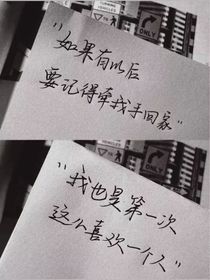 ONLY
"如果有以后
要记得牵我手回家"
ONLY
"我也是第一次
这么喜欢一个人"